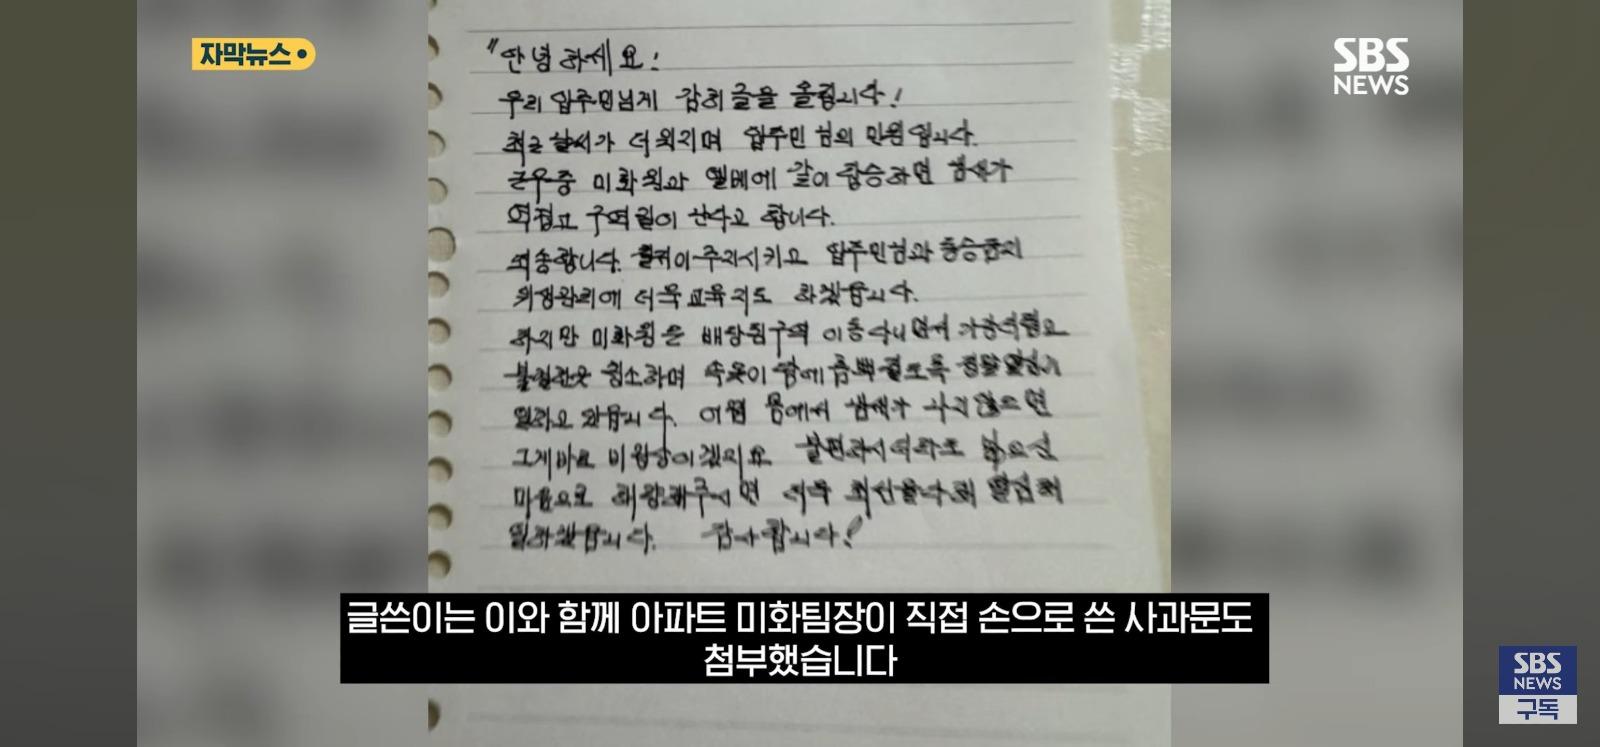 자막뉴스
SBS
NEWS
"안녕하세요!
우리 입주민님께 감히 글을 올립니다!
최근 날씨가 더워지며 입주민님의 민원입니다.
근무중 미화원과 엘베에 같이 탑승하면 냄새가
역겹고 구역질이 난다고 합니다.
죄송합니다. 주지시키고 입주민님과 동승금지
위생관리에 더욱 교육지도 하겠습니다.
하지만 미화원은 배당된구역 이동다니면서
청소하며 속옷이 땀에 흠뻑 젖도록 정말 열심히
일하고 있습니다. 어찌 몸에서 냄새가 나지 않으면
그게바로 비정상이겠지요 불편하시더라도 넓으신
마음으로 해량해주시면 더욱 최선을다해 열심히
일하겠습니다. 감사합니다!
글쓴이는 이와 함께 아파트 미화팀장이 직접 손으로 쓴 사과문도
첨부했습니다
SBS
NEWS
구독